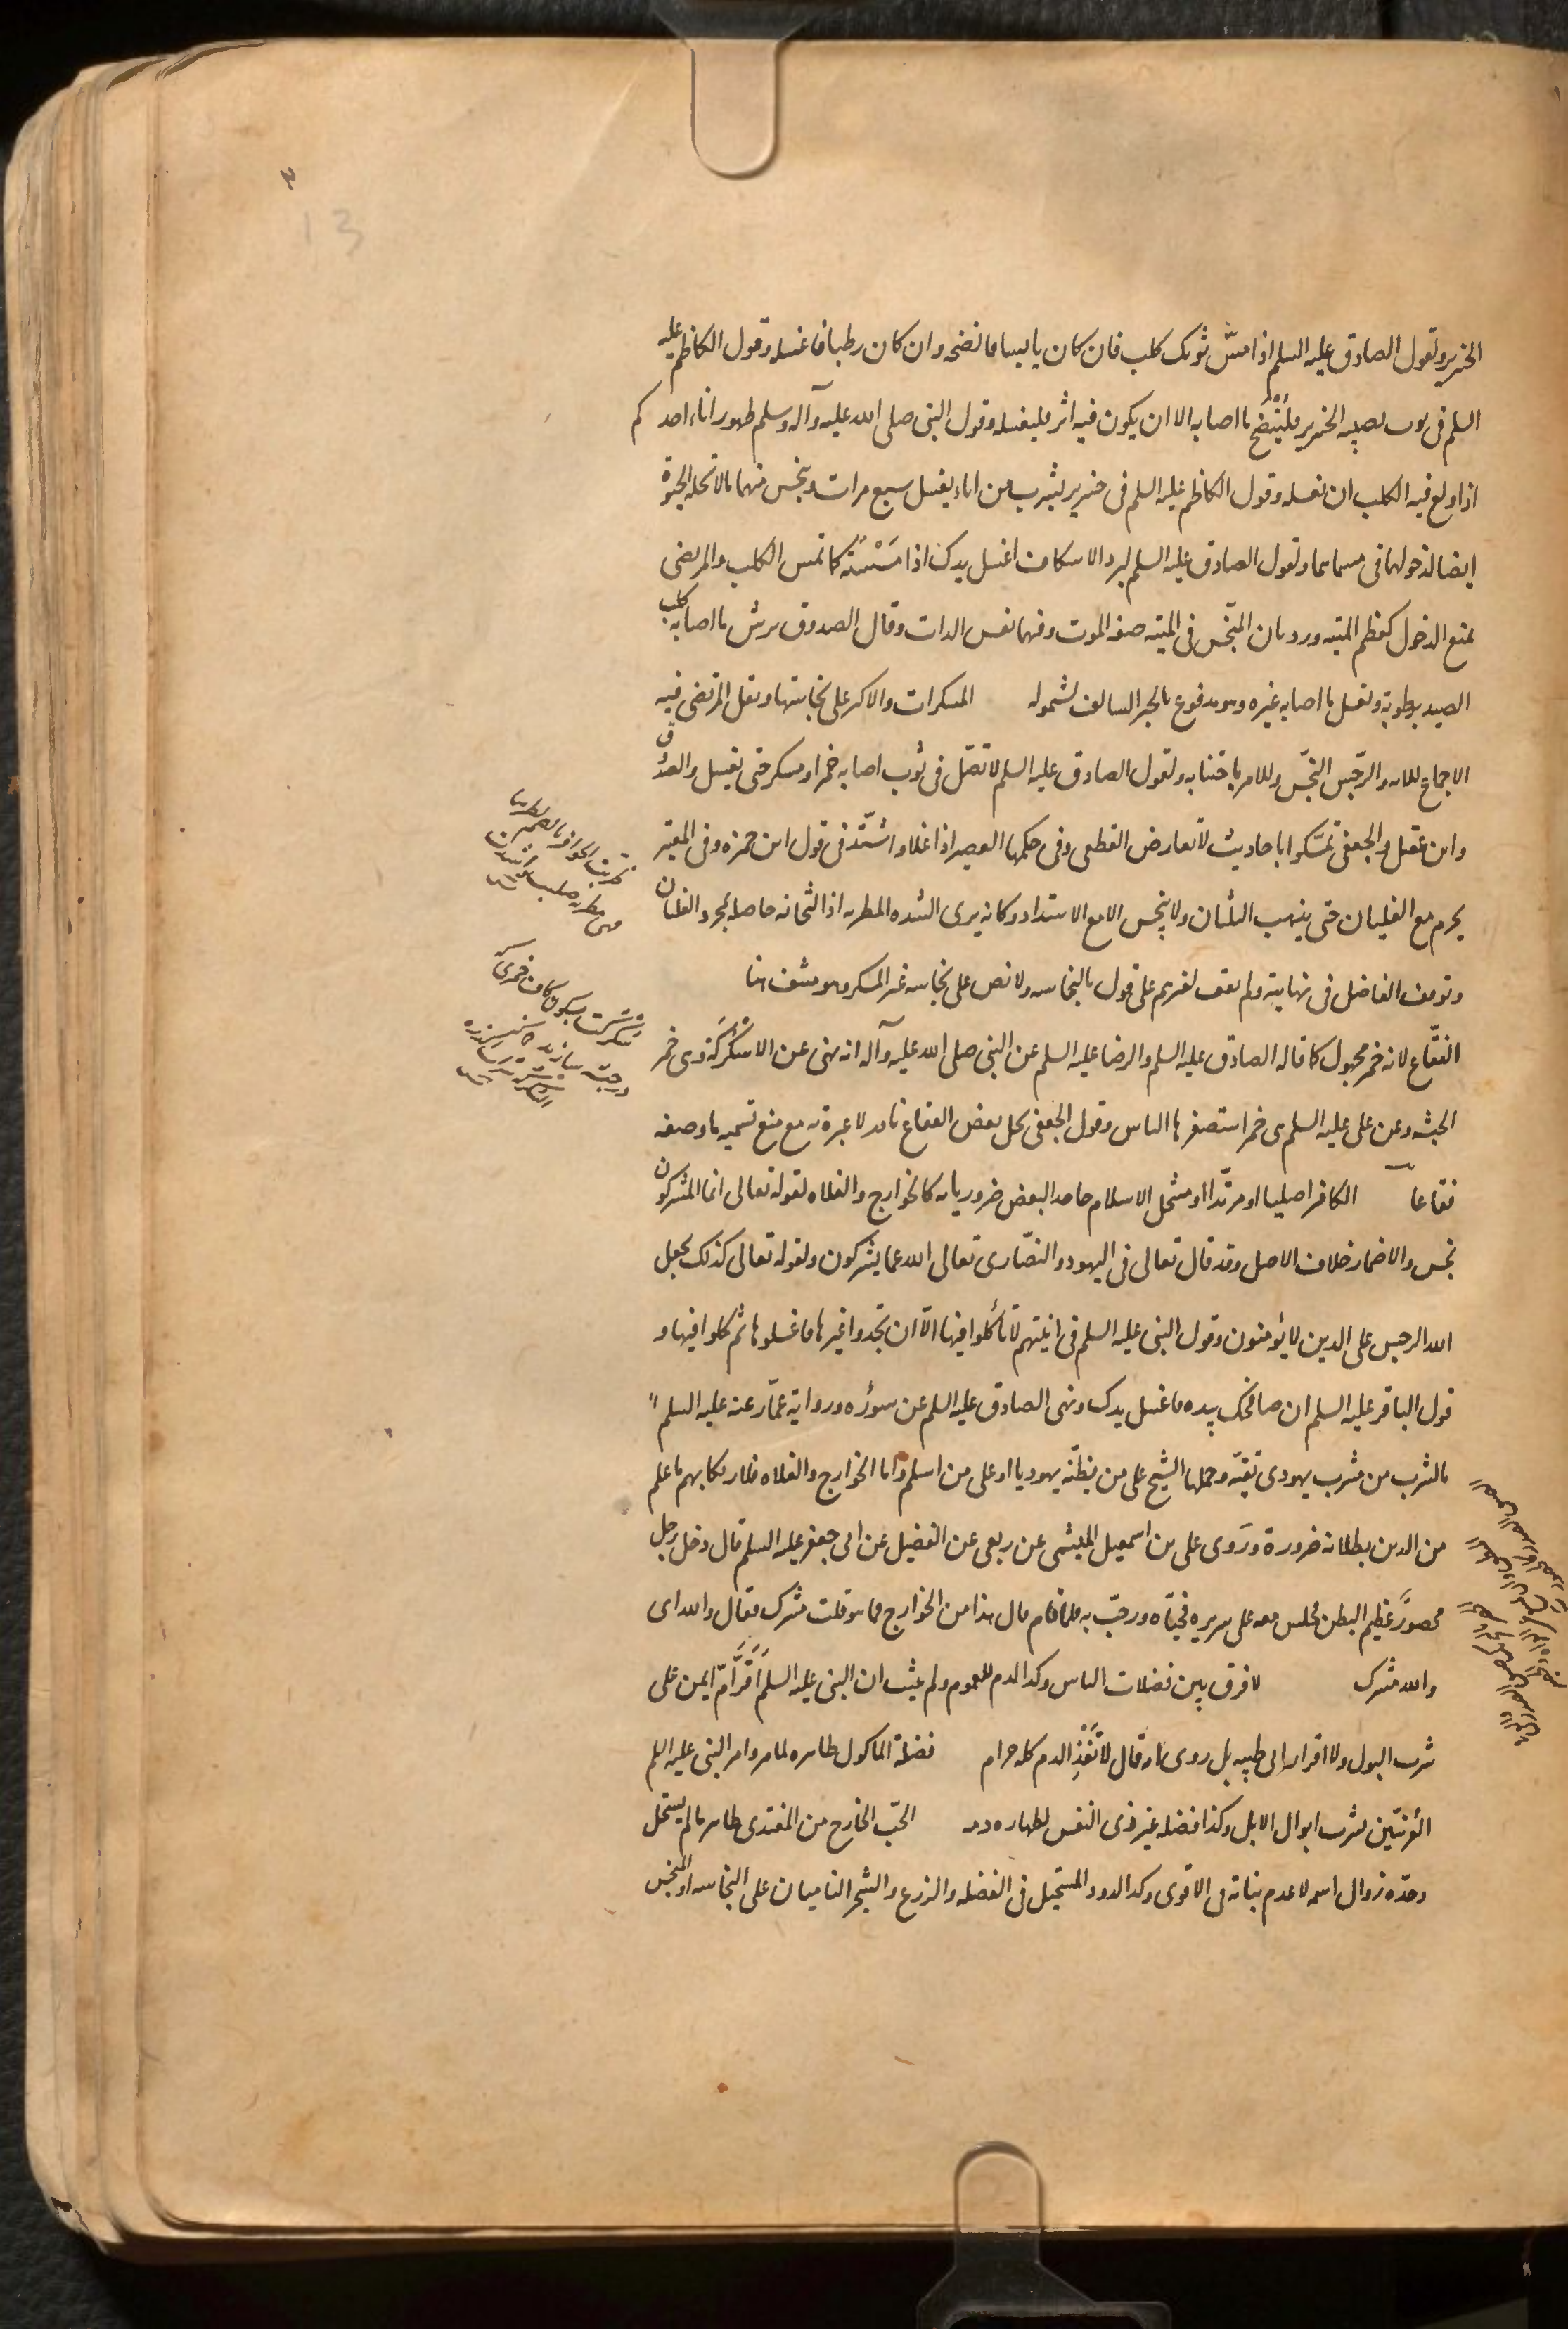 ٣
13
الخنزير ولقول الصادق عليه السلم اذا مسّ ثوبك كلب فان كان يابسا فانضحه وان كان رطبا فاغسله وقول الكاظم عليه
السلم فى ثوب يصيبه الخنزير فليَنْضَح ما اصابه الا ان يكون فيه اثر فليغسله وقول النبى صلى الله عليه وآله وسلم طهور اناء احدكم
اذا ولغ فيه الكلب ان يغسله وقول الكاظم عليه السلم فى خنزير يشرب من اناء يغسل سبع مرات وينجس منهما ما لا تحله الحيوة
ايضا لدخولهما فى مسماهما ولقول الصادق عليه السلم لبرد الاسكاف اغسل يدك اذا مَسَسْتَه كما تمس الكلب والمرتضى
يمنع الدخول كعظم الميته ورد بان المنجّس فى الميته صفه الموت وفيهما نفس الذات وقال الصدوق يرش ما اصابه كلب
الصيد برطوبة ويغسل ما اصابه غيره وهو مدفوع بالخبر السالف لشموله المسكرات والاكثر على نجاستها ونقل المرتضى فيه
الاجماع للاية والرّجس النجس وللامر باجتنابه ولقول الصادق عليه السلم لا تصّل فى ثوب اصابه خمر او مسكر حتى يغسل والصدوق
وابن عقيل والجعفى تمسّكوا باحاديث لا تعارض القطعى وفى حكمها العصير اذا غلا واشتّد فى قول ابن حمزه وفى المعتبر
يحرم مع الغليان حتى يذهب الثلثان ولا ينجس الا مع الاشتداد وكانه يرى الشده المطربه اذ الثخانه حاصله بمجرد الغليان
وتوقف الفاضل فى نهايته ولم نقف لغيرهم على قول بالنجاسه ولا نص على نجاسه غير المسكر وهو منتف هنا
الفقّاع لانه خمر مجهول كما قاله الصادق عليه السلم والرضا عليه السلم عن النبى صلى الله عليه وآله انه نهى عن الاسْكُرْكَة وهى خمر
الحبشه وعن على عليه السلم هى خمر استصغرها الناس وقول الجعفى بحل بعض الفقاع نادر لا عبرة به مع منع تسميه ما وصفه
فقاعا الكافر اصليا او مرتّدا او منتحل الاسلام جاحد البعض ضرورياته كالخوارج والغلاه لقوله تعالى انما المشركون
نجس والاضمار خلاف الاصل وقد قال تعالى فى اليهود والنصّارى تعالى الله عما يشركون ولقوله تعالى كذلك يجعل
الله الرجس على الذين لا يؤمنون وقول النبى عليه السلم فى انيتهم لا تأكلوا فيها الّا ان تجدوا غيرها فاغسلوها ثم كلوا فيها و
قول الباقر عليه السلم ان صافحك بيده فاغسل يدك ونهى الصادق عليه السلم عن سؤره ورواية عمّار عنه عليه السلم
بالشرب من مشرب يهودى تقيّه وحملها الشيخ على من يظنّه يهوديا او على من اسلم واما الخوارج والغلاه فلارتكابهم ما علم
من الدين بطلانه ضرورة ورَوى على بن اسمعيل الميثمى عن ربعى عن الفضيل عن ابى جعفر عليه السلم قال دخل رجل
محصور عظيم البطن فجلس معه على سريره فحيّاه ورحبّ به فلما قام قال هذا من الخوارج فما هو قلت مشرك فقال والله اى
والله مشرك لا فرق بين فضلات الناس وكذا الدم للعموم ولم يثبت ان النبى عليه السلم اَقَرَّ امّ ايمن على
شرب البول ولا اقرار ابى طيبه بل روى انه قال لا تَعُد الدم كله حرام فضلة الماكول طاهره لما مر وامر النبى عليه السلم
العُرنيّين بشرب ابوال الابل وكذا فضله غير ذى النفس لطهاره دمه الحبّ الخارج من المغتذى طاهر ما لم يستحل
وحدّه زوال اسمه لا عدم نباته فى الاقوى وكذا الدود المستحيل فى الفضله والزرع والشجر الناميان على النجاسه او المنجس